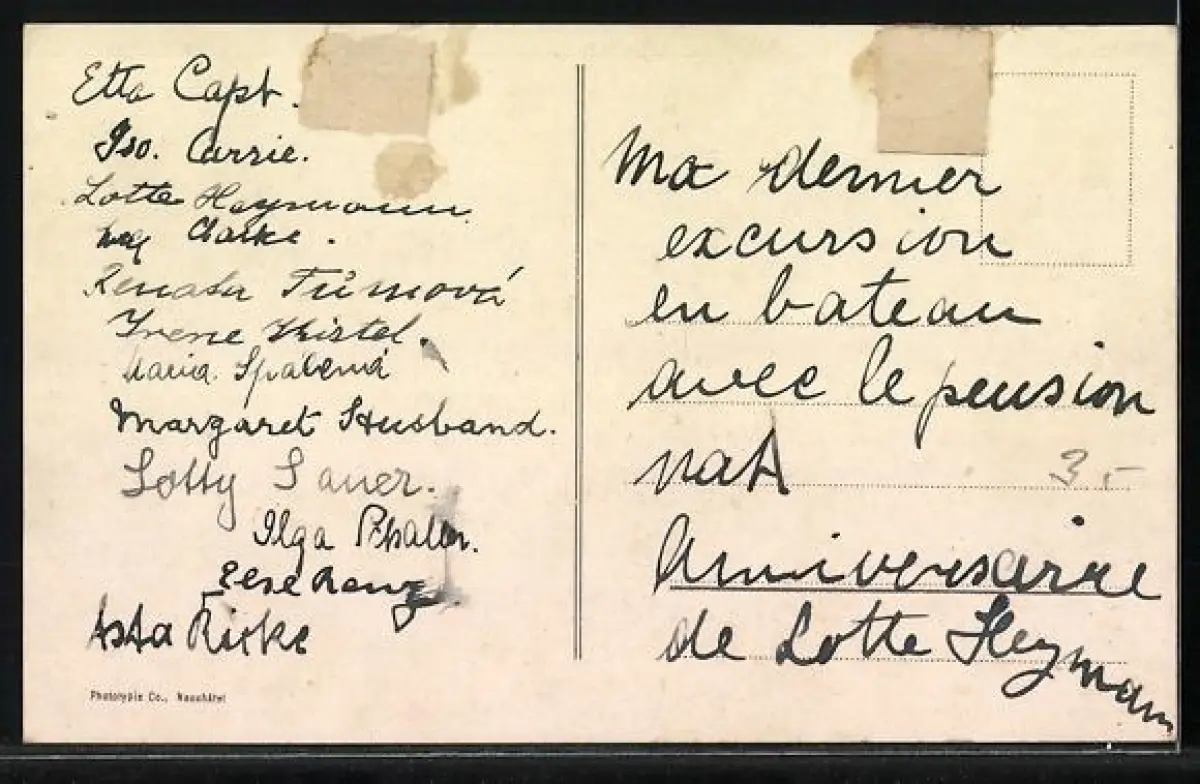 Etta Capt.
Iso. Carrie.
Lotte Heymann.
Clarke.
Renata Tůmová
Irene
Maria
Margaret Husband.
Lotty Sauer.
Ilga
Else
Asta Ricke
Photorypie Co., Neuchâtel
Ma dernier
excursion
en bateau
avec le pension
nat
3.-
Anniversaire
de Lotte Heymann